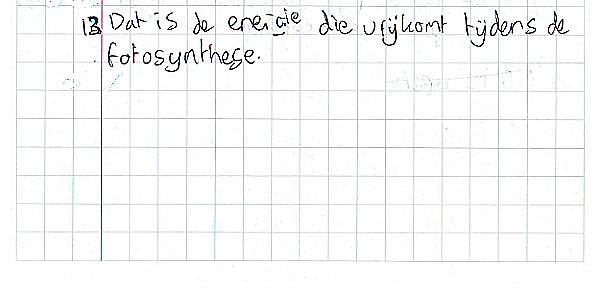 13 Dat is de energie die vrijkomt tijdens de
fotosynthese.